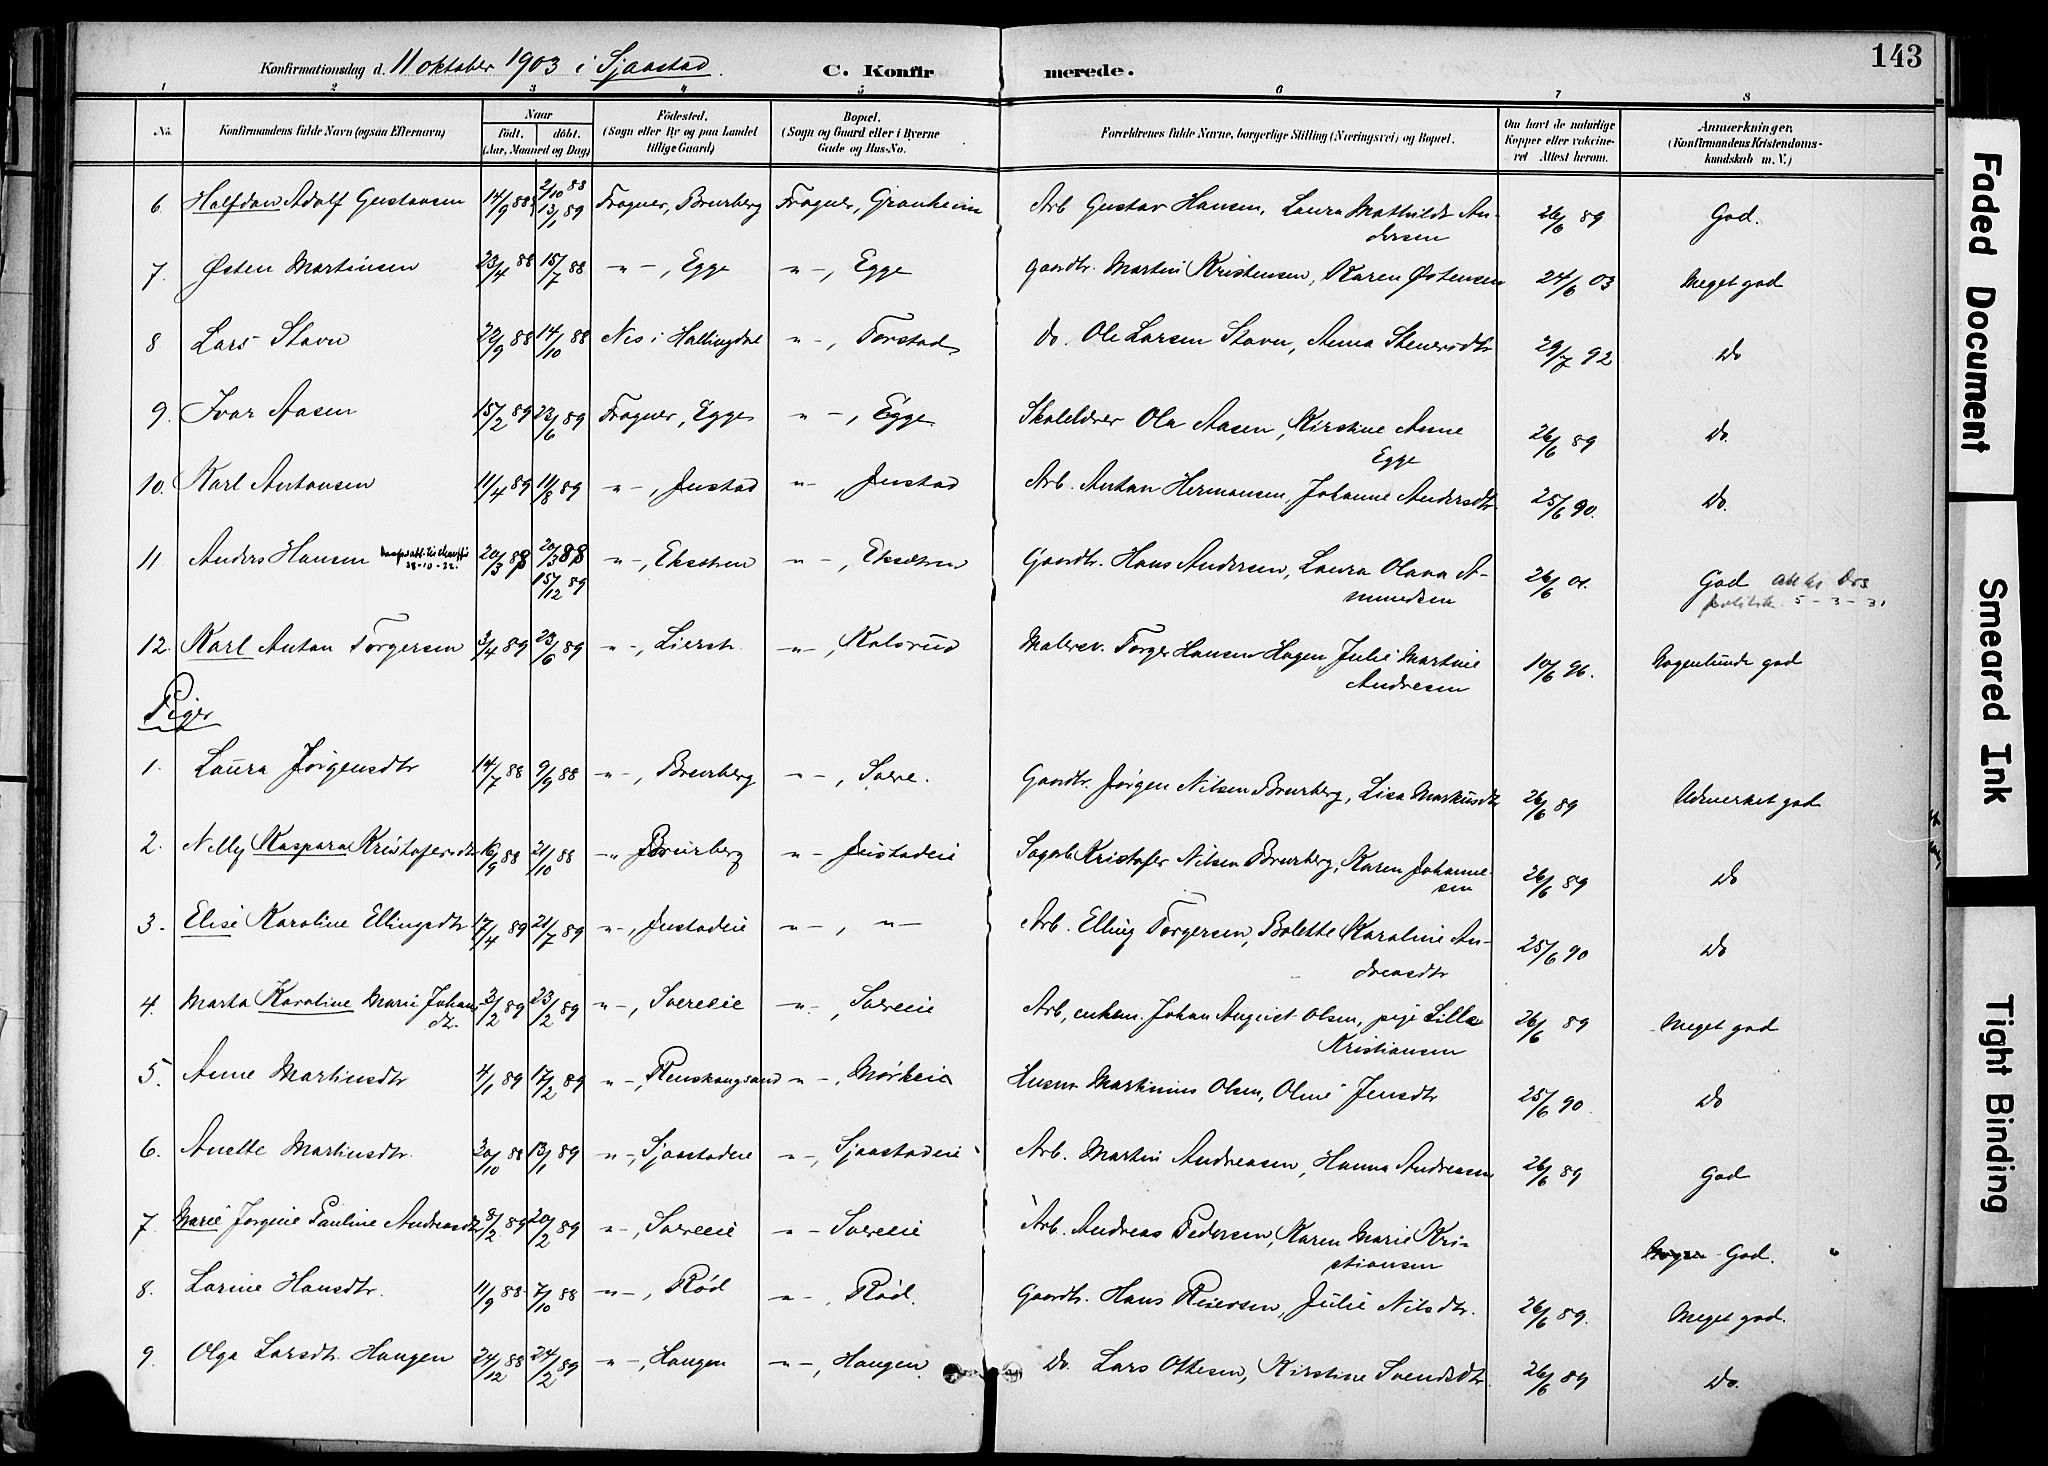 143
Konfirmationsdag d. 11 oktober 1903 i Sjaastad. C. Konfirmerede.
1 2 3 4 5 6 7 8
No. Konfirmandens fulde Navn (ogsaa Efternavn) Naar født. døbt. (Aar, Maaned og Dag) Fødested. (Sogn eller By og paa Landet tillige Gaard) Bopæl. (Sogn og Gaard eller i Byerne Gade og Hus-No. Forældrenes fulde Navne, borgerlige Stilling (Næringsvei) og Bopæl. Om havt de naturlige Kopper eller vakcineret. Attest herom. Anmærkninger. (Konfirmandens Kristendomskundskab m. V.)
6. Halfdan Adolf Gustavsen 14/9 88 2/10 88 13/1 89 Frogner, Brurberg Frogner, Granheim Arb Gustav Hansen, Laura Mathilde An-
dersen 26/6 89 God.
7. Østen Martinsen 23/4 88 15/7 88 -"-, Egge -"-, Egge Gaardbr. Martin Kristensen, Karen Østensen 24/6 03 Meget god
8 Lars Stavn 22/9 88 14/10 88 Nes i Hallingdal -"-, Torstad Do. Ole Larsen Stavn, Anna Stenersdtr 29/7 92 Do
9. Ivar Aasen 15/2 89 23/6 89 Frogner, Egge -"-, Egge Skolelærer Ola Aasen, Kirstine Anne
Egge 26/6 89 Do.
10. Karl Antonsen 11/4 89 11/8 89 -"-, Justad -"-, Justad Arb. Anton Hermansen, Johanne Andersdtr 25/6 90. Do.
11 Anders Hansen 28-10-22. 20/3 88 20/3 88 15/12 89 -"-, Eksotren -"-, Eksotren Gaardbr. Hans Andersen, Laura Olava A-
mundsen 26/6 01. God 5-3-31
12. Karl Anton Torgersen 3/4 89 23/6 89 -"-, Lierstr. -"-, Kalsrud Malersv. Torger Hansen Hagen, Julie Martine
Andresen 10/6 96. Nogenlunde god
Piger
1. Laura Jørgensdtr 14/7 88 9/9 88 -"-, Brurberg -"-, Soere. Gaardbr. Jørgen Nilsen Brurberg, Lisa Markusdtr 26/6 89 Udmerket god
2. Nelly Kaspara Kristofersdtr 16/9 88 21/10 88 -"- Brurberg -"- Justadeie Sagarb. Kristofer Nilsen Brurberg, Karen Johanne-
sen 26/6 89 Do
3. Elise Karoline Ellingsdtr 17/4 89 21/7 89 -"-, Justadeie -"-, -"- Arb. Elling Torgersen, Bolette Karoline An-
dreasdtr 25/6 90 Do
4. Marta Karoline Marie Johans
dtr. 3/2 89 23/2 89 -"-, Soereeie -"-, Soereeie Arb, enkem. Johan August Olsen, pige Lilla
Kristiansen 26/6 89 Meget god
5. Anne Martinsdtr 4/1 89 17/2 89 -"-, Renskougsand -"-, Mørkeie Husm. Martinius Olsen, Oline Jensdtr 25/6 90. Do
6. Anette Martinsdtr. 30/10 88 13/1 89 -"-, Sjaastadeie -"-, Sjaastadeie Arb. Martin Andreasen, Hanna Andreasen 26/6 89 God
7. Marie Jørgine Pauline Andreasdtr 8/2 89 20/2 89 -"-, Soereeie -"- Soereeie Arb. Andreas Pedersen, Karen Marie Kri-
stiansen God.
8. Larine Hansdtr. 11/9 88 7/10 88 -"-, Rød -"-, Rød. Gaardbr. Hans Reiersen, Julie Nilsdtr. 26/6 89. Meget god.
9. Olga Larsdtr. Haugen 24/12 88 24/2 89 -"-, Haugen -"-, Haugen. Do. Lars Ottesen, Kirstine Svendsdtr. 26/6 89 Do.
Faded Document
Smeared Ink
Tight Binding